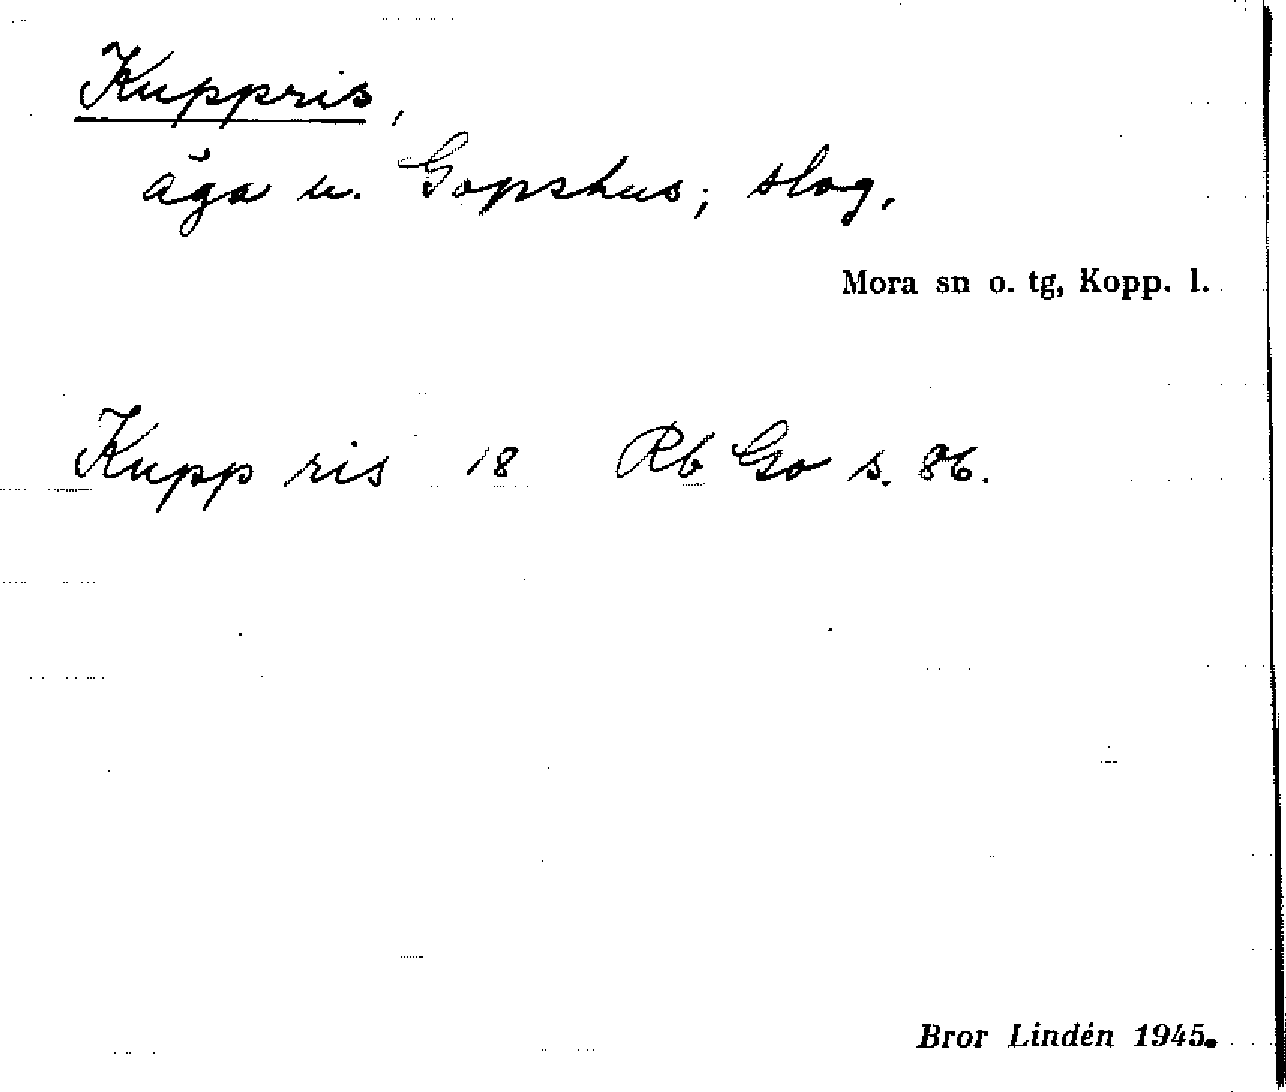 Kuppris,
äga u. Gopshus; slog.
Mora sn o. tg, Kopp. l.
Kupp ris 18 Rb Go s. 86.
Bror Lindén 1945.